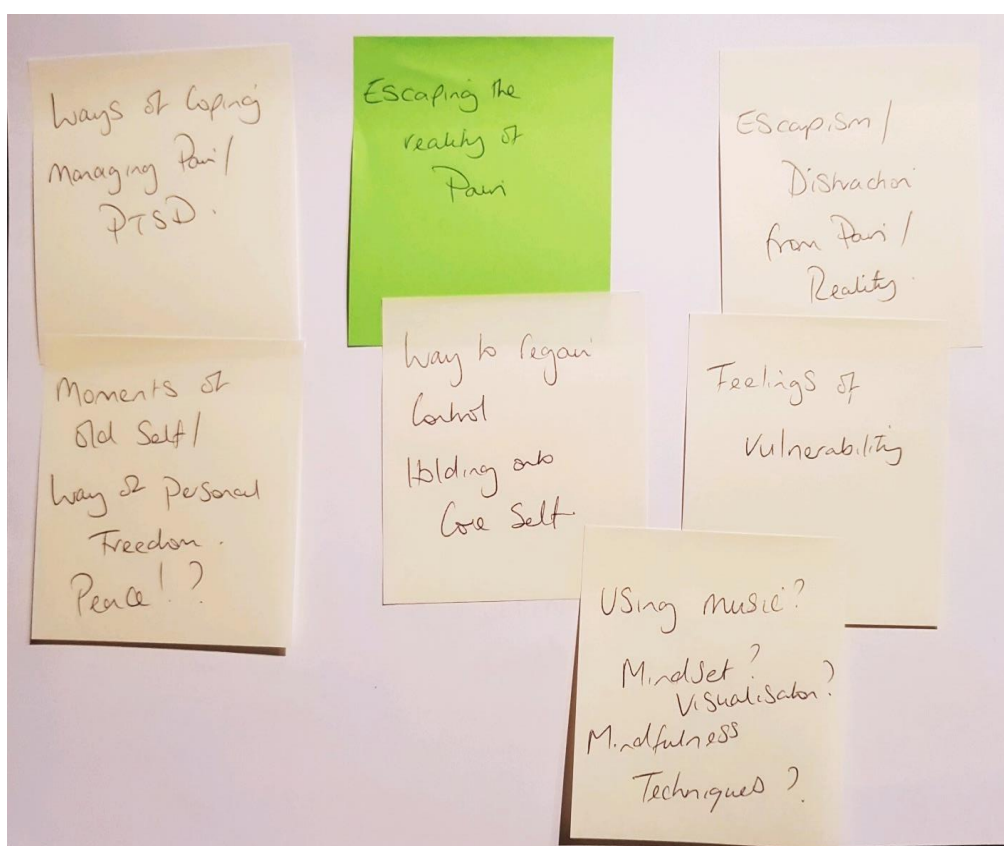 Ways of Coping
Managing Pain/
PTSD.
Escaping the
reality of
Pain
Escapism/
Distraction
from Pain/
Reality.
Moments of
Old Self/
Way of Personal
Freedom.
Peace!?
Way to regain
Control
Holding onto
Core Self.
Feelings of
Vulnerability
Using music?
Mindset?
Visualisation?
Mindfulness
Techniques?